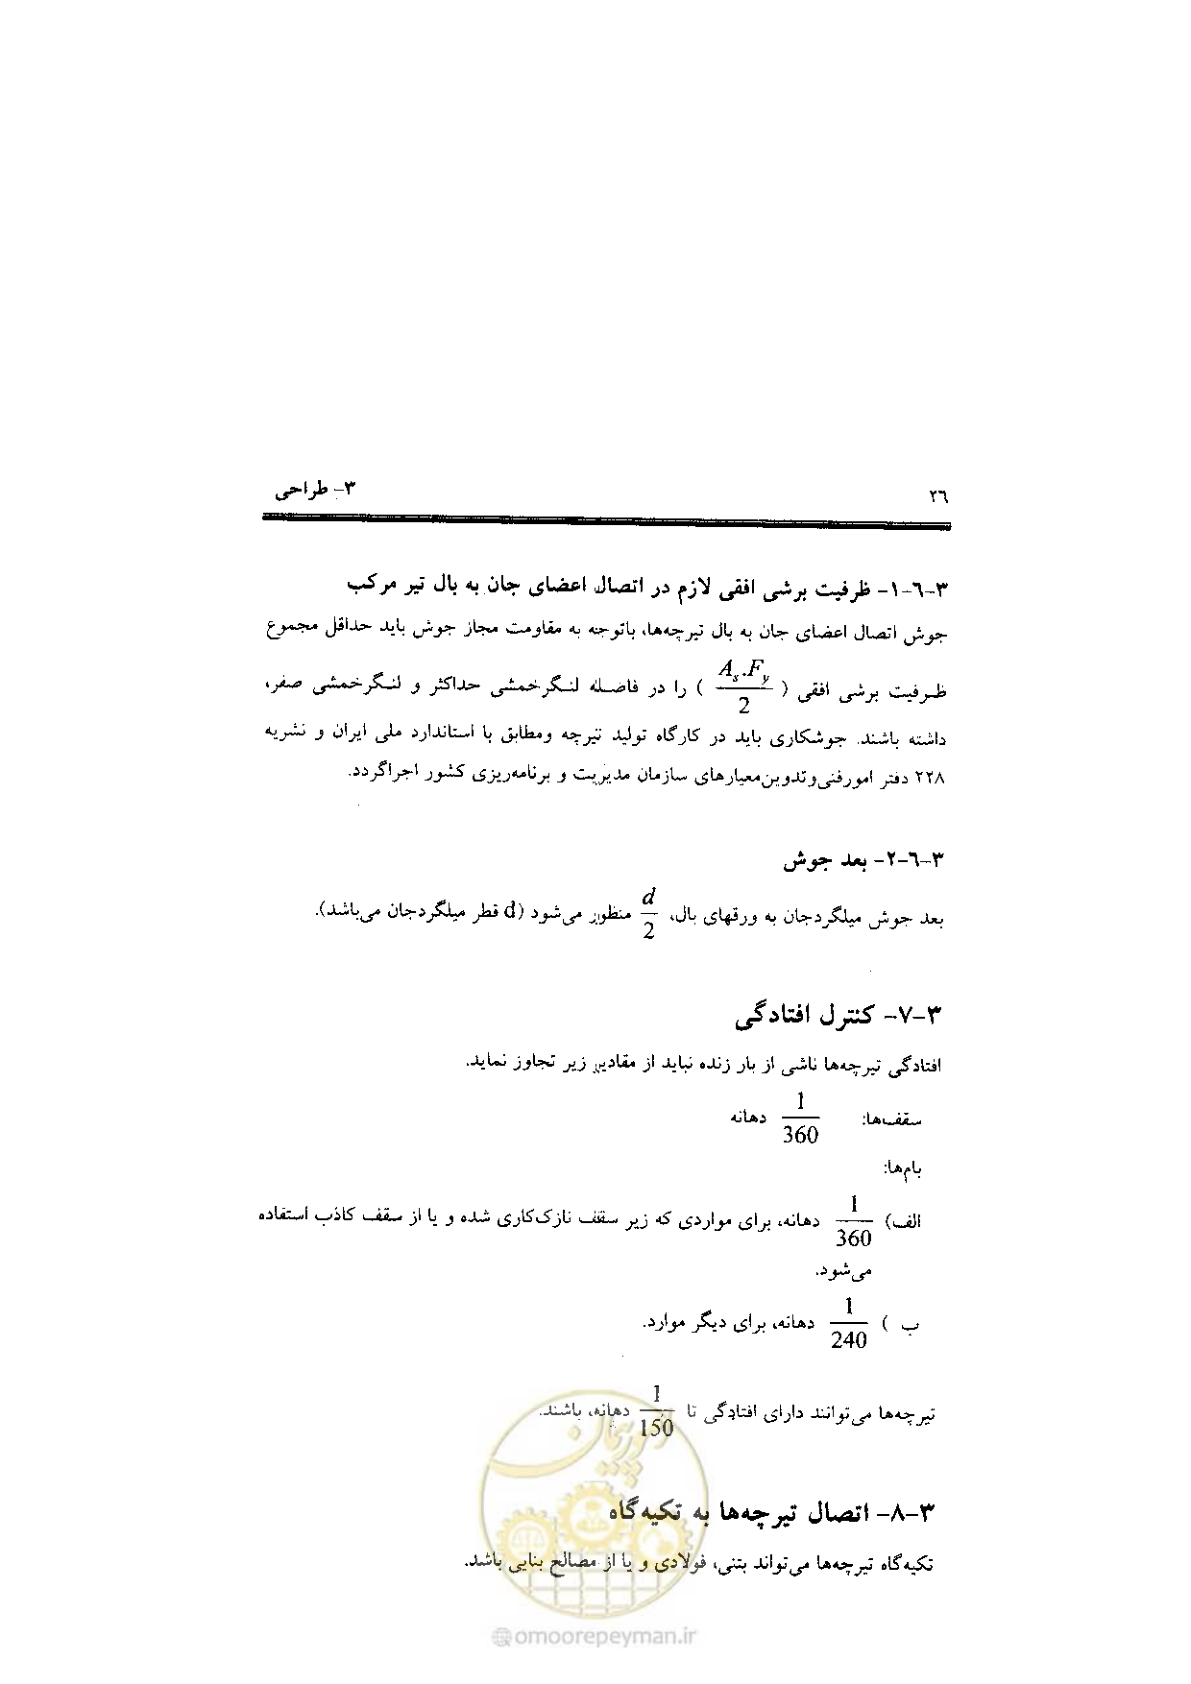 ۲۶
۳- طراحی
۳-۶-۱- ظرفیت برشی افقی لازم در اتصال اعضای جان به بال تیر مرکب
جوش اتصال اعضای جان به بال تیرچه‌ها، باتوجه به مقاومت مجاز جوش باید حداقل مجموع
ظرفیت برشی افقی ( A_s.F_y / 2 ) را در فاصله لنگرخمشی حداکثر و لنگرخمشی صفر،
داشته باشند. جوشکاری باید در کارگاه تولید تیرچه ومطابق با استاندارد ملی ایران و نشریه
۲۲۸ دفتر امورفنی‌وتدوین‌معیارهای سازمان مدیریت و برنامه‌ریزی کشور اجراگردد.
۳-۶-۲- بعد جوش
بعد جوش میلگردجان به ورقهای بال، d/2 منظور می‌شود (d قطر میلگردجان می‌باشد).
۳-۷- کنترل افتادگی
افتادگی تیرچه‌ها ناشی از بار زنده نباید از مقادیر زیر تجاوز نماید.
سقف‌ها: 1/360 دهانه
بام‌ها:
الف) 1/360 دهانه، برای مواردی که زیر سقف نازک‌کاری شده و یا از سقف کاذب استفاده
می‌شود.
ب ) 1/240 دهانه، برای دیگر موارد.
تیرچه‌ها می‌توانند دارای افتادگی تا 1/150 دهانه، باشند.
۳-۸- اتصال تیرچه‌ها به تکیه‌گاه
تکیه‌گاه تیرچه‌ها می‌تواند بتنی، فولادی و یا از مصالح بنایی باشد.
امور پیمان
@omoorepeyman.ir